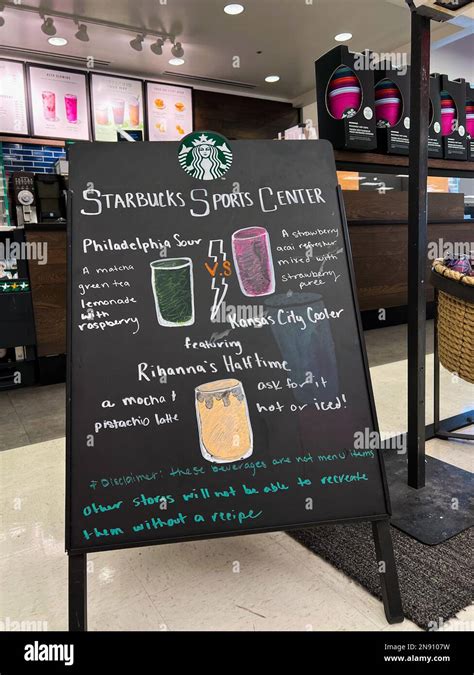 STARBUCKS SPORTS CENTER
Philadelphia Sour
A matcha
green tea
lemonade
with
raspberry
V.S
A strawberry
acai refresher
mixed with
strawberry
puree
Kansas City Cooler
featuring
Rihanna's Halftime
a mocha +
pistachio latte
ask for it
hot or iced!
* Disclaimer: these beverages are not menu items
other stores will not be able to recreate
them without a recipe
alamy
Image ID: 2N9107W
www.alamy.com